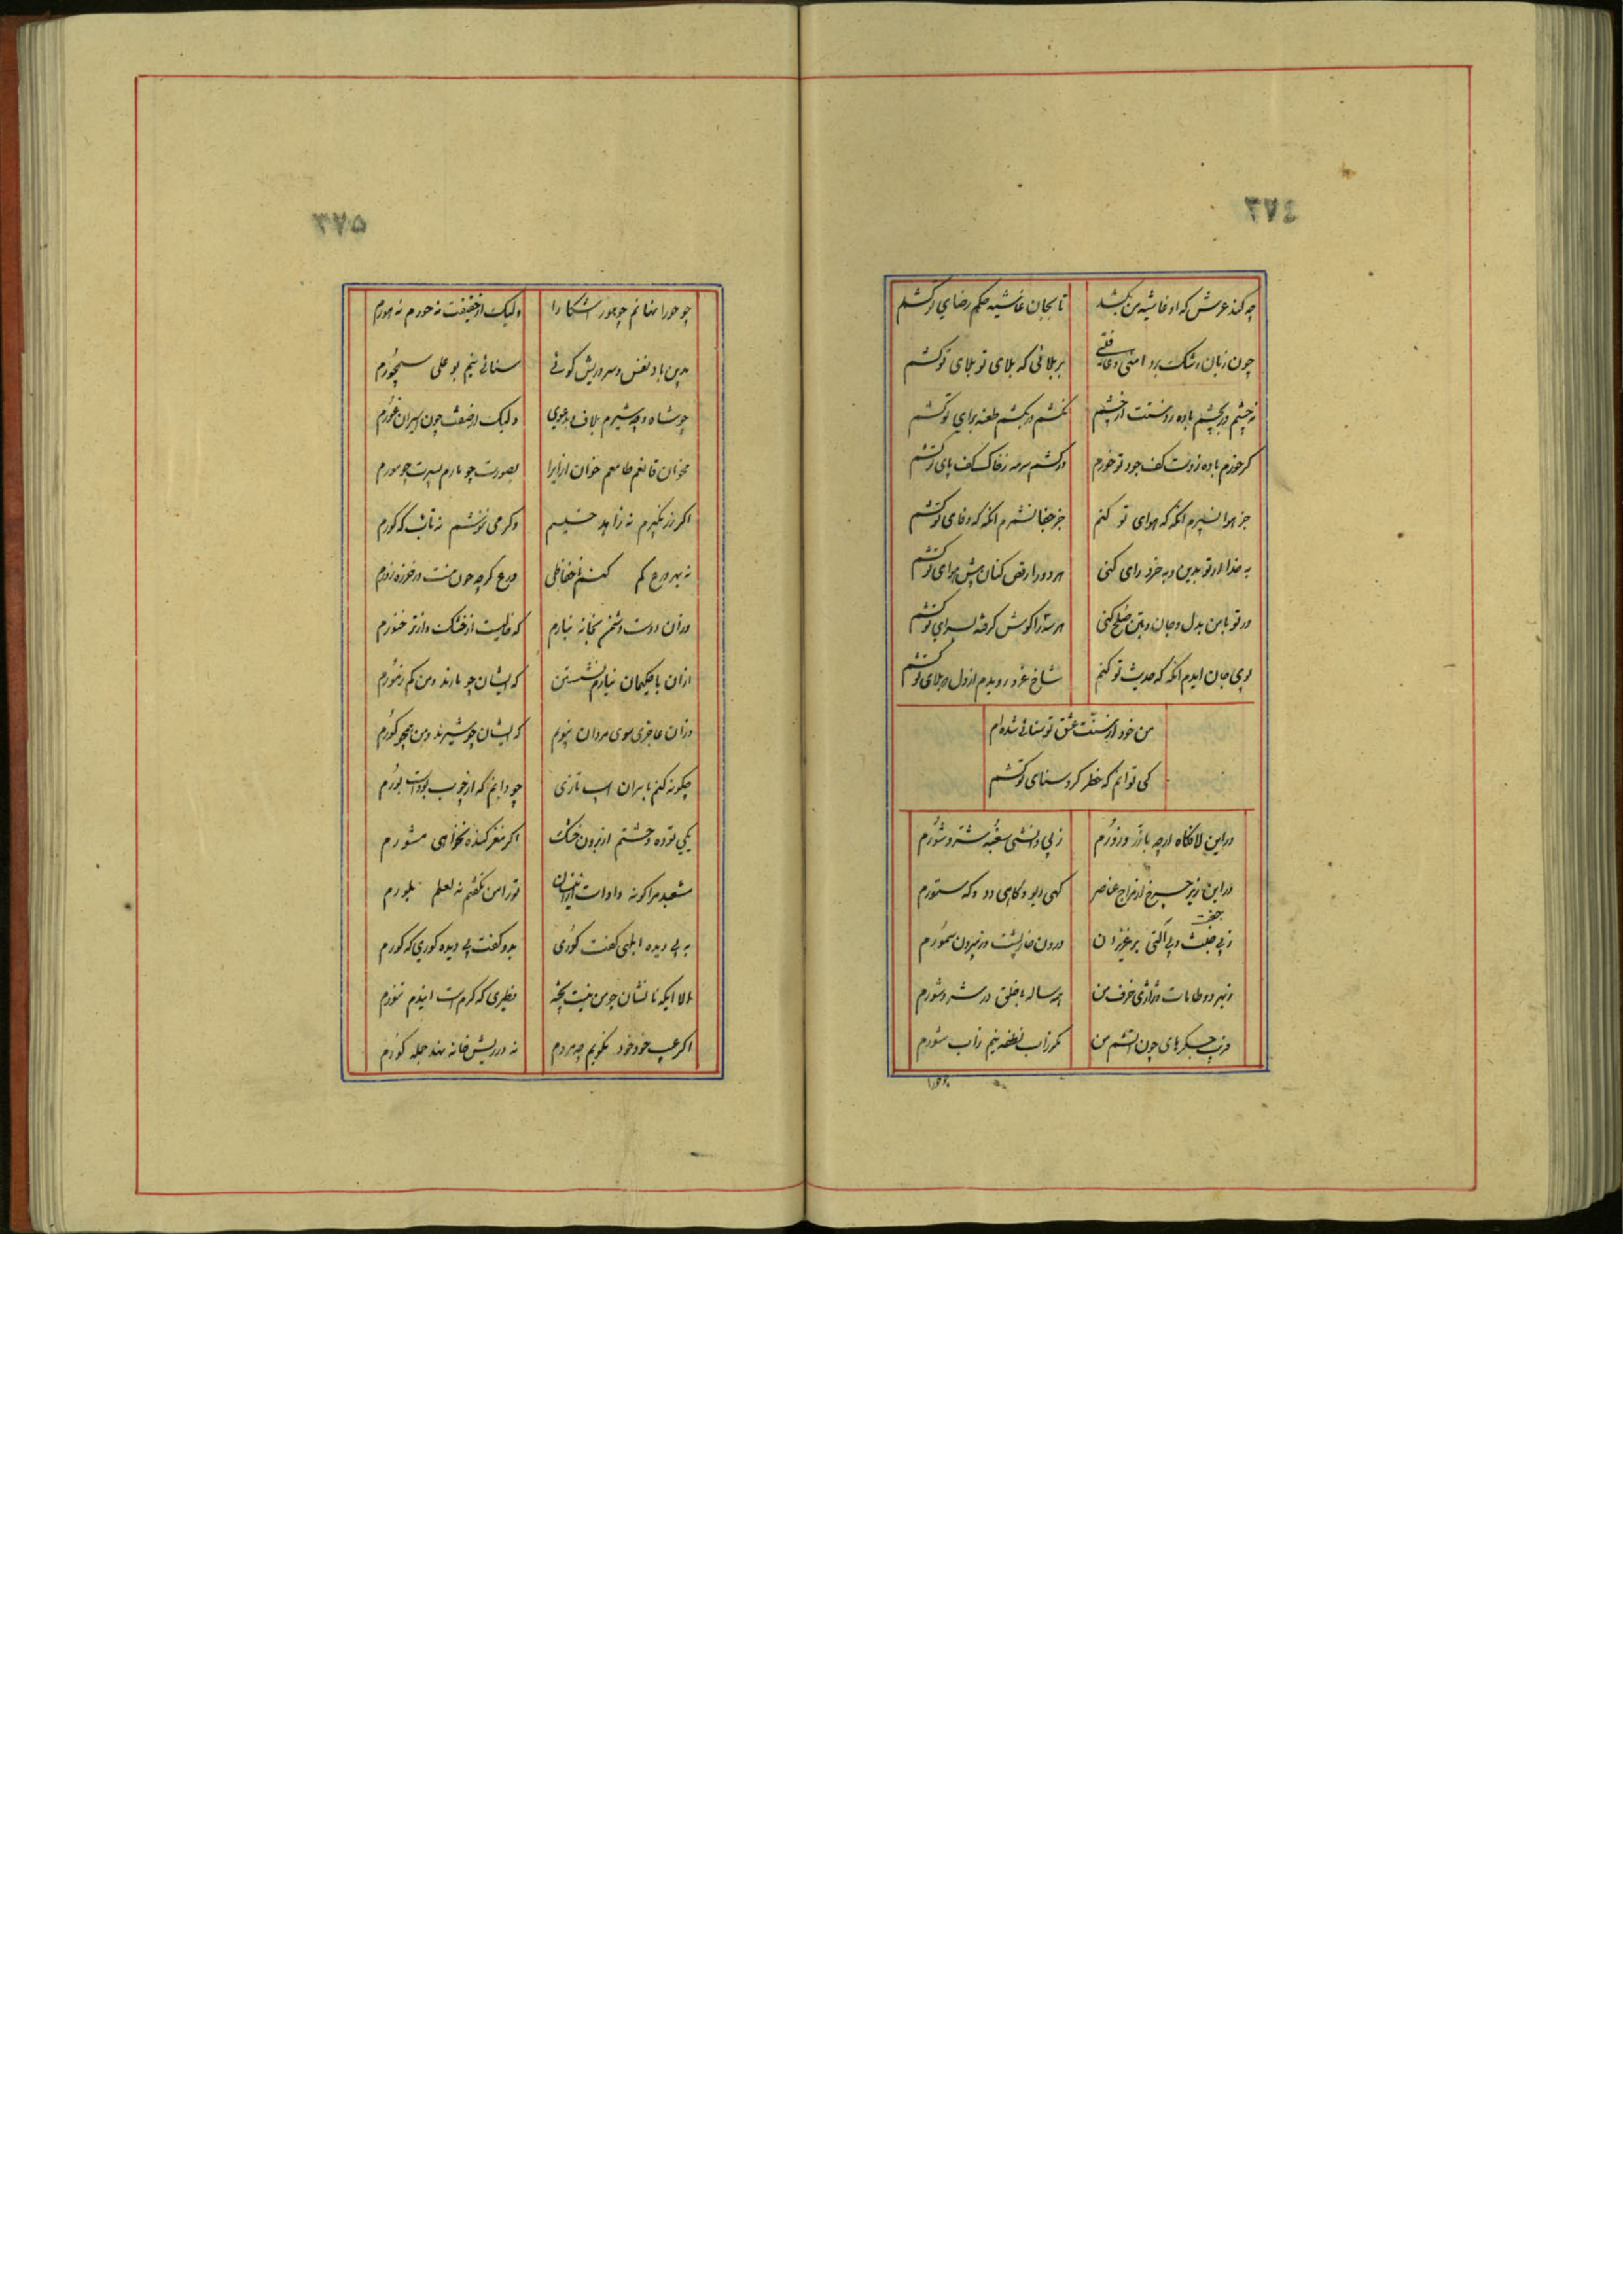 ٣٧٤
چه کند عرش که او غاشیه من نکشد
تا بجان غاشیه حکم رضای تو کشم
چون زنان رشک برد امنی و عافیتی
بر بلائی که بلای تو بلای تو کشم
نچشم ور بچشم باده ز دستت از چشم
نکشم ور بکشم طعنه برای تو کشم
گر خورم باده ز دست کف جود تو خورم
ور کشم سرمه ز خاک کف پای تو کشم
جز هوا نسپرم آنگه که هوای تو کنم
جز جفا نشمرم آنگه که وفای تو کشم
به خدا ار تو بدین و به خرد رای کنی
هر دو را رقص کنان پیش هوای تو کشم
ور تو با من بدل و جان و بتن صلح کنی
هر سه را گوش گرفته بسرای تو کشم
بوی جان آیدم آنگه که حدیث تو کنم
شاخ عز رویدم از دل چو بلای تو کشم
من خود از نسبت عشق تو سنائی شده ام
کی توانم که خطر کرد سنای تو کشم
در این لافگاه ارچه با زر و زورم
ز بی دانشی سغبه شر و شورم
در این زیر چرخ از مزاج عناصر
گهی دیو و گاهی دد و گه ستورم
جفت
ز بی جنت و بی آلتی بر عزیزان
درون خارپشت و ز بیرون سمورم
ز بیهوده طامات و ژاژی خرف من
همه ساله با خلق در شر و شورم
مزیب جگرهای چون آتشم من
مگر زاب نطفه نیم زاب شورم
چو حورا
٣٧٥
چو حورا نهانم چو هور آشکارا
ولیک از حقیقت نه حورم نه هورم
بدین باد نفس و سر و ریش گوئی
سنائی نیم بو علی سیمجورم
چو شاه و چو شیرم بلاف و بدعوی
ولیک از صفت چون اسیران غورم
مخوان قانعم طامعم خوان ازیرا
بصورت چو مارم بسیرت چو مورم
اگر زر نگیرم نه زاهد خسیسم
وگر می ننوشم نه تائب که کورم
نه بهر ورع کم کنم با حفاظی
ورع گرچه چون منت در خوزه زورم
وزان دوست دشمن بخانه نیارم
که خالیست از خشک وز تر خنورم
ازان با حکیمان نیارم نشستن
که ایشان چو مارند و من کم ز مورم
وزان عاجزی سوی مردان نپویم
که ایشان چو شیرند و من همچو گورم
چگونه کنم با سران اسب تازی
چو دانم که از چوب بودست بورم
یکی توده و حشتم از برون خشک
اگر مغز گنده نخواهی مشورم
مشعبد مرا گونه داد است ازینسان
تو را من نگفتم نه لعلم بلورم
به بی دیده ابلهی گفت کوری
بدو گفت بی دیده کوری که کورم
الا ایکه نا نشان چو من نیست پخته
فطیری که گرمست ایندم تنورم
اگر عیب خود خود نگویم چه مردم
نه درویش خانه نهند جمله کورم